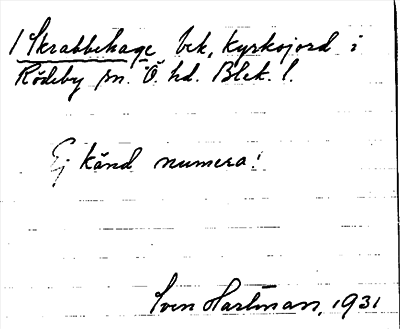 1 Skrabbehage bek, kyrkojord i
Rödeby sn. Ö. hd. Blek. l.
Ej känd numera!
Sven Hartman, 1931